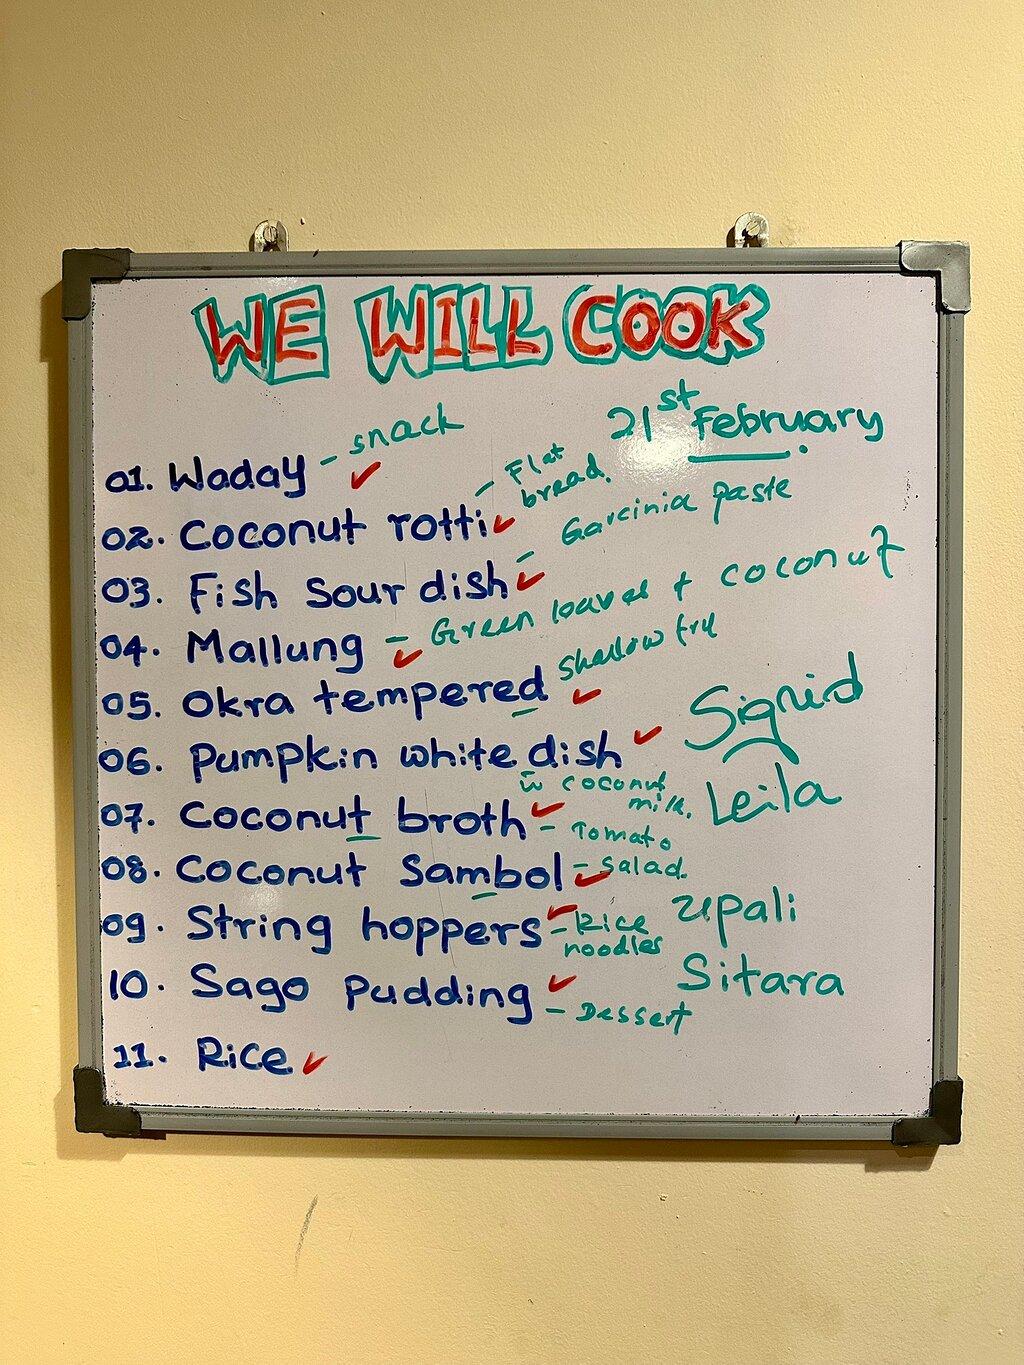 WE WILL COOK
21st February.
01. Waday - snack
02. Coconut rotti - Flat bread.
03. Fish Sour dish - Garcinia paste
04. Mallung - Green leaves + coconut
05. Okra tempered shallow fry
06. Pumpkin white dish
w coconut milk.
07. Coconut broth - Tomato
08. Coconut Sambol - Salad.
09. String hoppers - Rice noodles
10. Sago Pudding - Dessert
11. Rice
Sigrid
Leila
Upali
Sitara